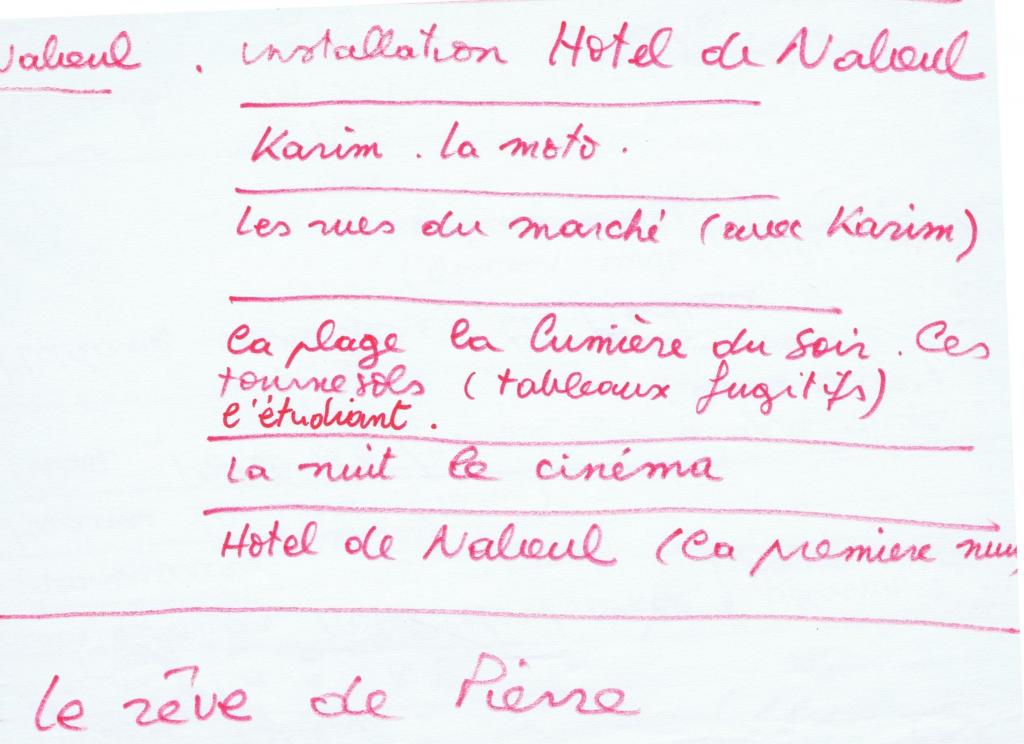 Nabeul . installation Hotel de Nabeul
Karim . la moto .
Les rues du marché (avec Karim)
La plage la lumière du soir . Les
tournesols (tableaux fugitifs)
l'étudiant .
La nuit le cinéma
Hotel de Nabeul (La premiere nuit
le rêve de Pierre